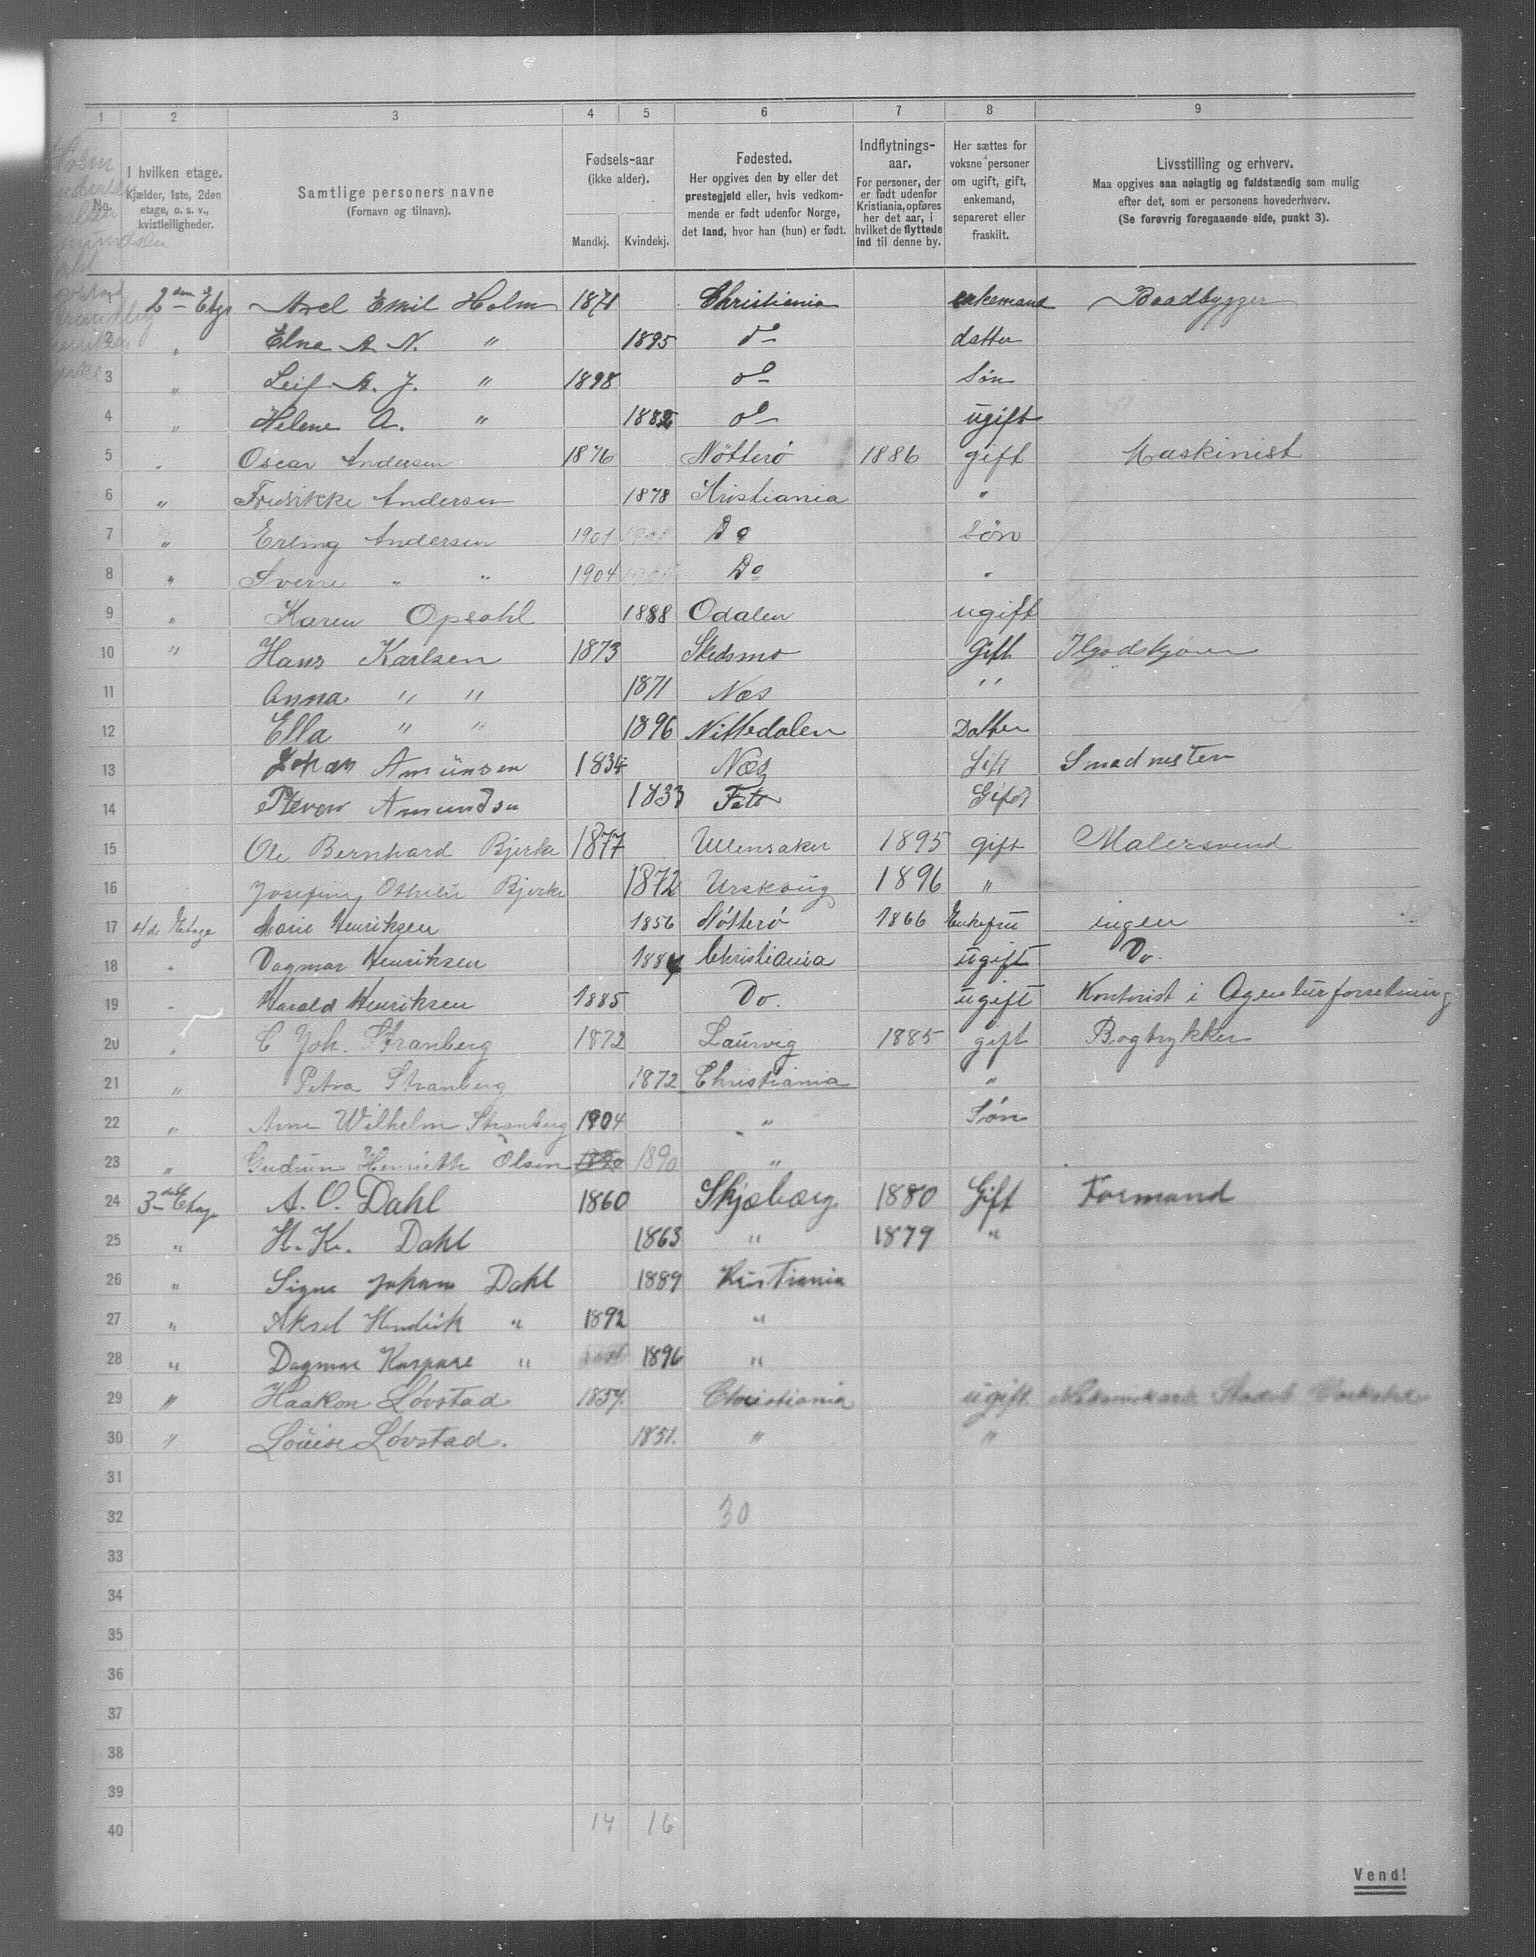 1 2 3 4 5 6 7 8 9
No.
I hvilken etage.
Kjælder, 1ste, 2den
etage, o. s. v.,
kvistleiligheder.
Samtlige personers navne
(Fornavn og tilnavn).
Fødsels-aar
(ikke alder).
Mandkj. Kvindekj.
Fødested.
Her opgives den by eller det
prestegjeld eller, hvis vedkom-
mende er født udenfor Norge,
det land, hvor han (hun) er født.
Indflytnings-
aar.
For personer, der
er født udenfor
Kristiania, opføres
her det aar, i
hvilket de flyttede
ind til denne by.
Her sættes for
voksne personer
om ugift, gift,
enkemand,
separeret eller
fraskilt.
Livsstilling og erhverv.
Maa opgives saa nøiagtig og fuldstændig som mulig
efter det, som er personens hovederhverv.
(Se forøvrig foregaaende side, punkt 3).
2den Etge Axel Emil Holm 1871 Christiania enkemand Baadbygger
2 " Elna A. N. " 1895 do datter
3 " Leif A. J. " 1898 do Søn
4 " Helene A. " 1882 do ugift
5 " Oscar Andersen 1876 Nötterö 1886 gift Maskinist
6 " Fredrikke Andersen 1878 Kristiania "
7 " Erling Andersen 1901 Do Søn
8 " Sverre " " 1904 Do "
9 " Karen Opsahl 1888 Odalen ugift
10 " Hans Karlsen 1873 Skedsmo Gift
11 Anna " " 1871 Næs "
12 Ella " " 1896 Nittedalen Datter
13 Johan Amünsen 1834 Næs Gift
14 Amundsen 1833 Fet Gift
15 Ole Bernhard Bjerke 1877 Ullensaker 1895 gift Malersvend
16 Josefine Othilie Bjerke 1872 Urskoug 1896 "
17 4de Etage Marie Henriksen 1856 Nötterö 1866 Enkefru ingen
18 " Dagmar Henriksen 1884 Christiania ugift Do.
19 " Harald Henriksen 1885 Do. ugift Kontorist i Agenturforretning
20 " C Joh. Stranberg 1872 Laurvig 1885 gift Bogtrykker
21 " Petra Stranberg 1872 Christiania "
22 " Arne Wilhelm Stranberg 1904 " Søn
23 " Gudrun Henriette Olsen 1890 1890 "
24 3die Etage A. O. Dahl 1860 Skjeberg 1880 Gift Formand
25 " H. K. Dahl 1863 " 1879 "
26 " Signe Johan Dahl 1889 Kristiania
27 " Aksel Hendrik " 1892 "
28 " Dagmar Kaspare " 1896 "
29 " Haakon Løvstad 1857. Christiania ugift
30 " Louise Løvstad. 1851. " "
31
32 30
33
34
35
36
37
38
39
40 14 16
Vend!